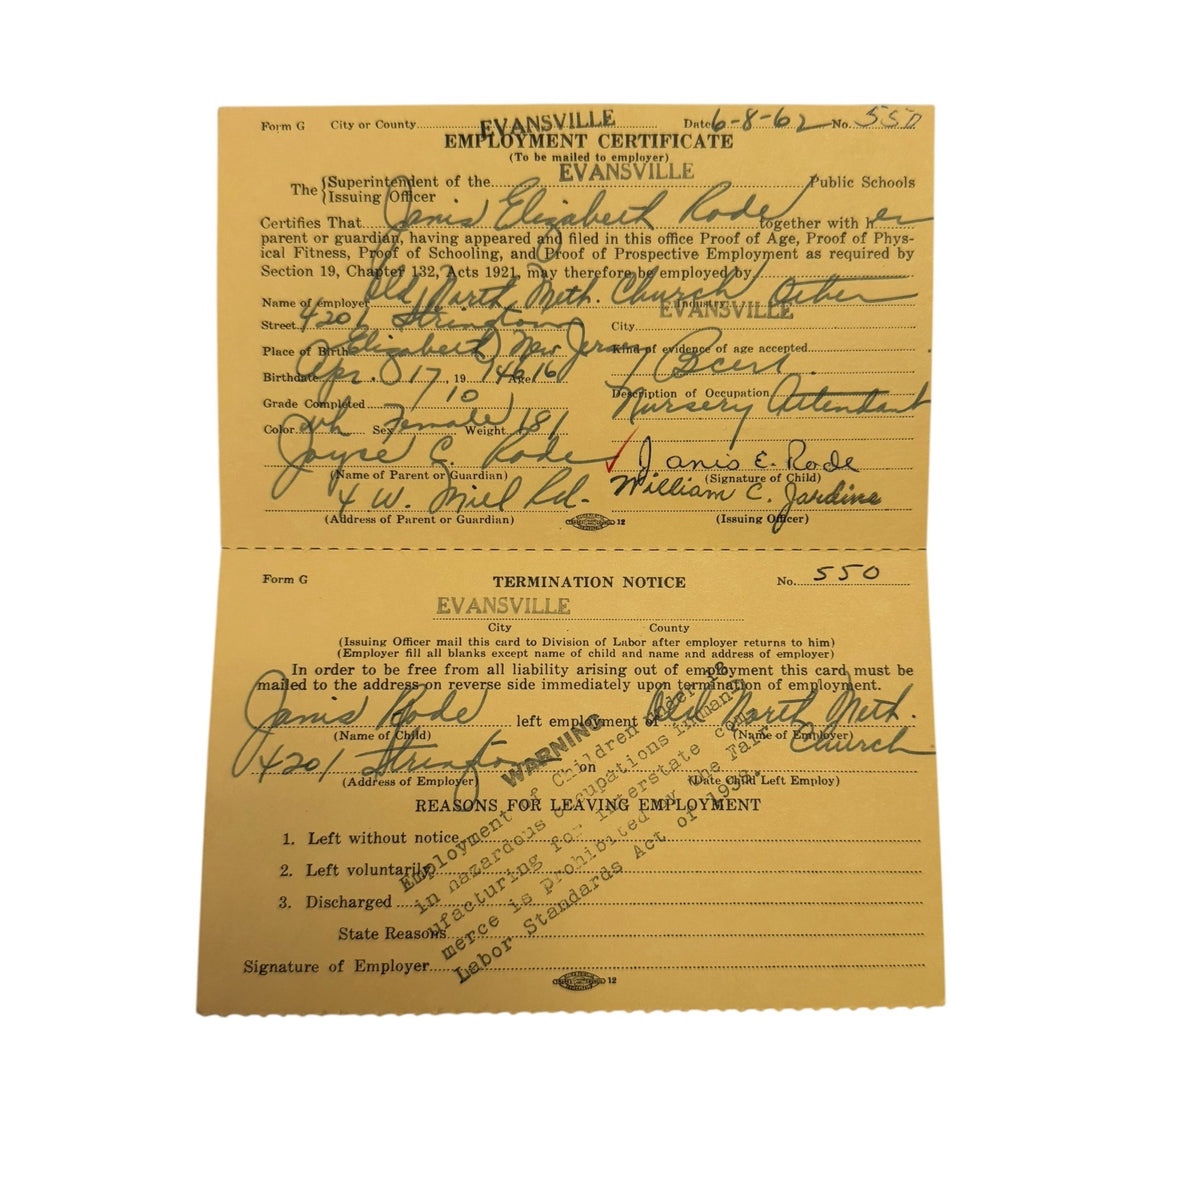 Form G City or County EVANSVILLE Date 6-8-62 No. 550
EMPLOYMENT CERTIFICATE
(To be mailed to employer)
The {Superintendent of the EVANSVILLE Public Schools
{Issuing Officer
Certifies That Janis Elizabeth Rode together with her
parent or guardian, having appeared and filed in this office Proof of Age, Proof of Phys-
ical Fitness, Proof of Schooling, and Proof of Prospective Employment as required by
Section 19, Chapter 132, Acts 1921, may therefore be employed by
Name of employer Old North Meth. Church Industry Other
Street 4201 Stringtown City EVANSVILLE
Place of Birth Elizabeth, New Jersey Kind of evidence of age accepted
Birthdate Apr. 17, 1946 Age 16 B cert.
Grade Completed 10 Description of Occupation
Nursery Attendant
Color wh Sex Female Weight 181
Joyce C. Rode Janis E. Rode
(Name of Parent or Guardian) (Signature of Child)
4 W. Mill Rd. William C. Jardine
(Address of Parent or Guardian) 12 (Issuing Officer)
Form G TERMINATION NOTICE No. 550
EVANSVILLE
City County
(Issuing Officer mail this card to Division of Labor after employer returns to him)
(Employer fill all blanks except name of child and name and address of employer)
In order to be free from all liability arising out of employment this card must be
mailed to the address on reverse side immediately upon termination of employment.
Janis Rode left employment of Old North Meth.
(Name of Child) (Name of Employer) Church
4201 Stringtown on
(Address of Employer) (Date Child Left Employ)
REASONS FOR LEAVING EMPLOYMENT
1. Left without notice
2. Left voluntarily
3. Discharged
State Reasons
Signature of Employer
12
WARNING
Employment of Children under 18
in hazardous occupations in man-
ufacturing for interstate com-
merce is prohibited by the Fair
Labor Standards Act of 1938.